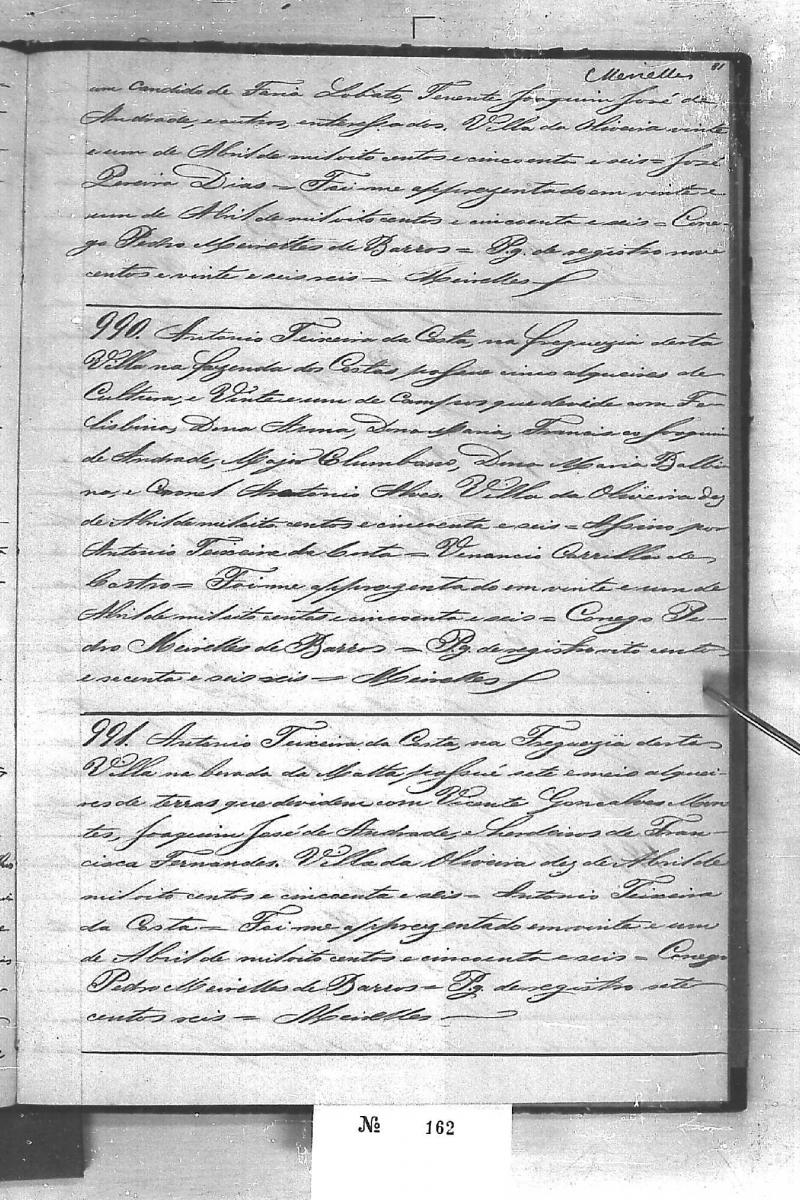 81
Meirelles
um Candido de Faria Lobato, Tenente Joaquim José de
Andrade, e outros, enteressados. Villa da Oliveira vinte
e um de Abril de mil oito centos e cincoenta e seis = José
Pereira Dias = Foi me apprezentado em vinte e
um de Abril de mil oito centos e cincoenta e seis = Cone-
go Pedro Meirelles de Barros = Pg. de registro nove
centos e vinte e seis reis = Meirelles
990. Antonio Teixeira da Costa, na freguezia desta
Villa na fazenda dos Costas possue cinco alqueires de
Cultura, e Vinte e um de Campos que devide com Fe-
lisbina, Dona Anna, Dona Maria, Francisco Joaquim
de Andrade, Major Elumbano, Dona Maria Balbi-
na, e Coronel Antonio Alves. Villa da Oliveira dez
de Abril de mil oito centos e cincoenta e seis = Assino por
Antonio Teixeira da Costa = Venancio Carrilho de
Castro = Foi me apprezentado em vinte e um de
Abril de mil oito centos e cincoenta e seis = Conego Pe-
dro Meirelles de Barros = Pg. de registro oito centos
e secenta e seis reis = Meirelles
991. Antonio Teixeira da Costa, na Freguezia desta
Villa na berada da Matta possue sete e meio alquei-
res de terras que devidem com Vicente Goncalves Mon
tes, Joaquim José de Andrade, e herdeiros de Fran-
cisca Fernandes. Villa da Oliveira dez de Abril de
mil oito centos e cincoenta e seis = Antonio Teixeira
da Costa = Foi me apprezentado em vinte e um
de Abril de mil oito centos e cincoenta e seis = Conego
Pedro Meirelles de Barros = Pg. de registro sete
centos reis = Meirelles
Nº 162